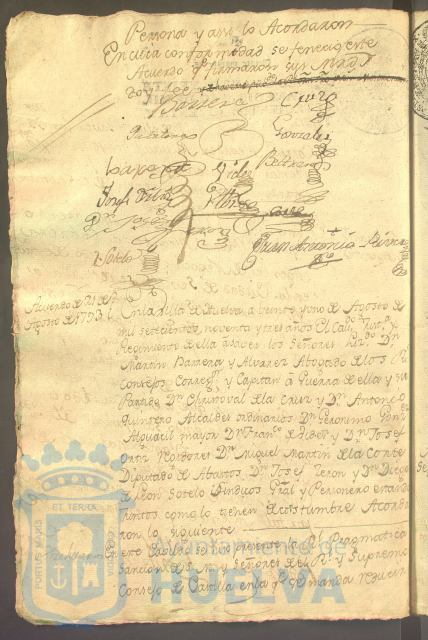 Persona y assi lo Acordaron
En cuia conformidad se fenecio este
Acuerdo y firmaron sus Mrds
doy fee
Barrera Cruz
Quintero Gonzalez
Beltran
Josef
Juan Antonio
Sotelo
Acuerdo de 21 de
Agosto de 1793
En la Villa de Huelva a veinte y uno de Agosto de
mil setecientos noventa y tres años El Cavº Justª y
Regimiento de ella a saver los Señores Dn
Martin Barrera y Alvarez Abogado de los Rs
Consejos Corregr y Capitan a Guerra de ella y su
Partido Dn Christoval de la Cruz y Dn Antonio
Quintero Alcaldes ordinarios Dn Geronimo
Alguacil mayor Dn Franco de y Dn Josef
Ortiz Rexidores Dn Miguel Martin de la Corte
Diputado de Abastos Dn Josef Veron y Dn Diego
de Leon Sotelo Sindicos Gral y Personero estando
juntos como lo tienen de costumbre Acorda
ron lo siguiente
En este Cavildo se hizo presente la Rl Pragmatica
Sancion de S. M. y Señores del Rl y Supremo
Consejo de Castilla en la qe se manda
PORTUS MARIS ET TERRÆ CUSTODIA
Ayuntamiento de
HUELVA